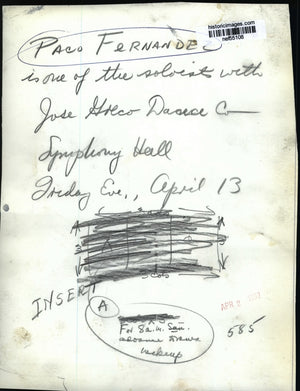 historicimages.com
PACO FERNANDEZ
is one of the soloist with
Jose Greco Dance Co
Symphony Hall
Friday Eve., April 13
INSERT
A
For Sa. u. Sun.
advance
makeup
585
APR 2